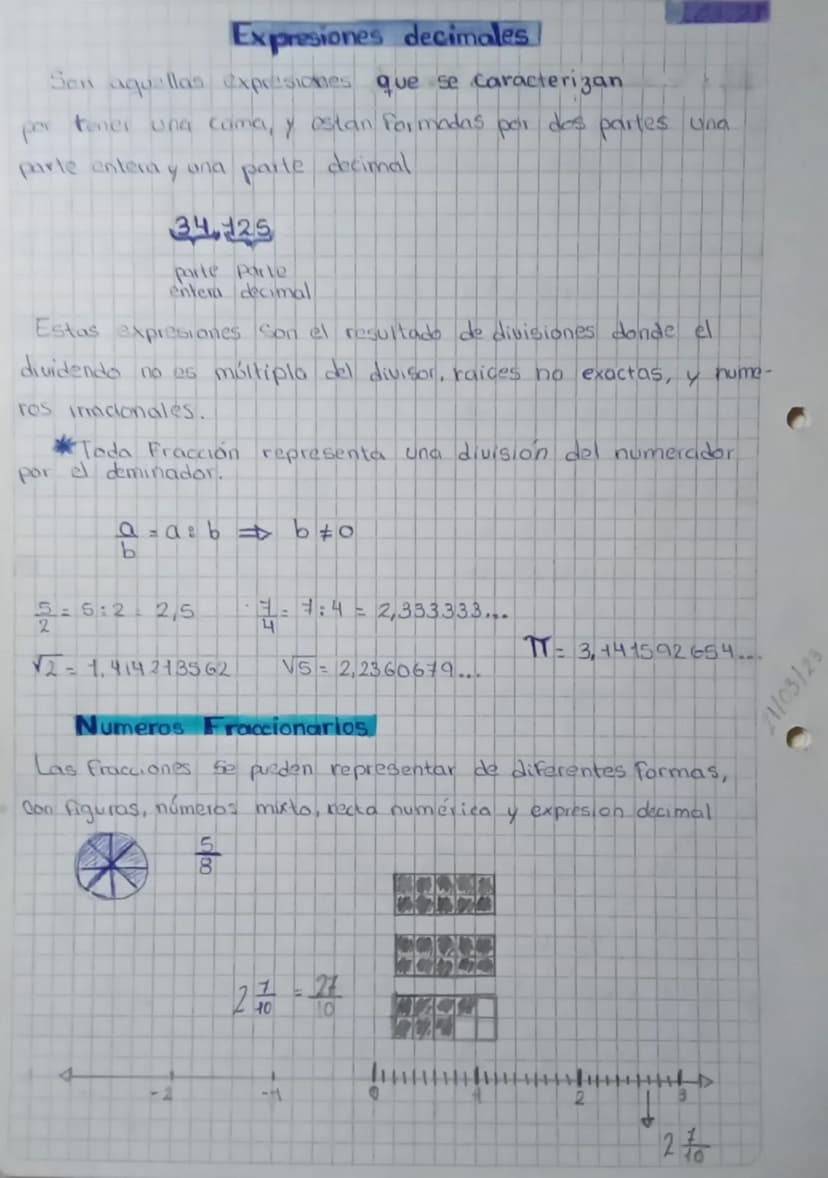 Expresiones decimales
Son aquellas expresiones que se caracterizan
por tener una coma, y estan formadas por dos partes una
parte entera y una parte decimal
34,125
parte parte
entera decimal
Estas expresiones son el resultado de divisiones donde el
dividendo no es múltiplo del divisor, raices no exactas, y nume-
ros irracionales.
*Toda Fracción representa una división del numerador
por el deminador.
a/b = a : b ⇒ b ≠ 0
5/2 = 5 : 2 = 2,5 7/4 = 7 : 4 = 2,333333...
π = 3,141592654...
√2 = 1,414213562 √5 = 2,2360679...
21/03/23
Numeros Fraccionarios
Las fracciones se pueden representar de diferentes formas,
con figuras, números mixto, recta numérica y expresion decimal
5/8
2 7/10 = 27/10
-2 -1 0 1 2 3
2 7/10